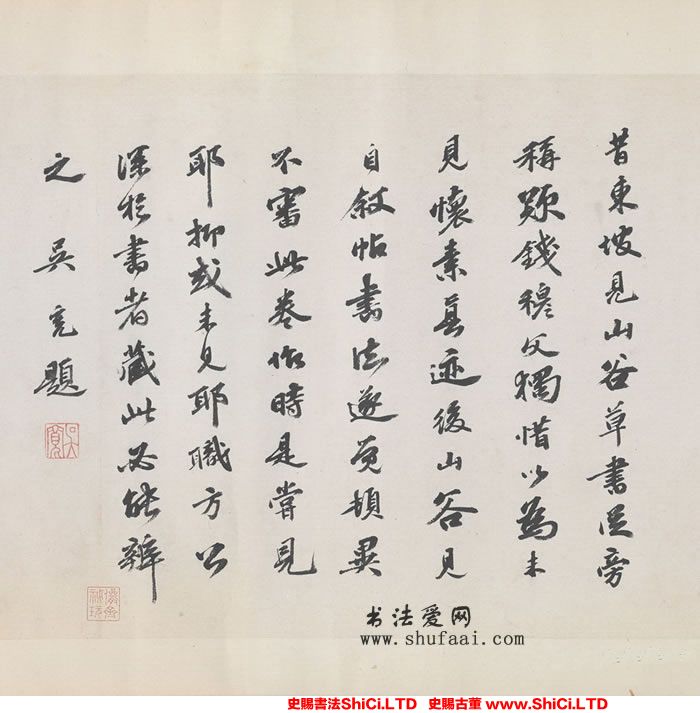 昔東坡見山谷草書從旁
稱歎錢穆父獨惜以為未
見懷素真迹後山谷見
自敘帖書法遂覺頓異
不審此卷作時是嘗見
耶抑或未見耶職方公
深於書者藏此必能辨
之 吳寬題
書法爱网
www.shufaai.com
史賜書法ShiCi.LTD 史賜古董 www.ShiCi.LTD